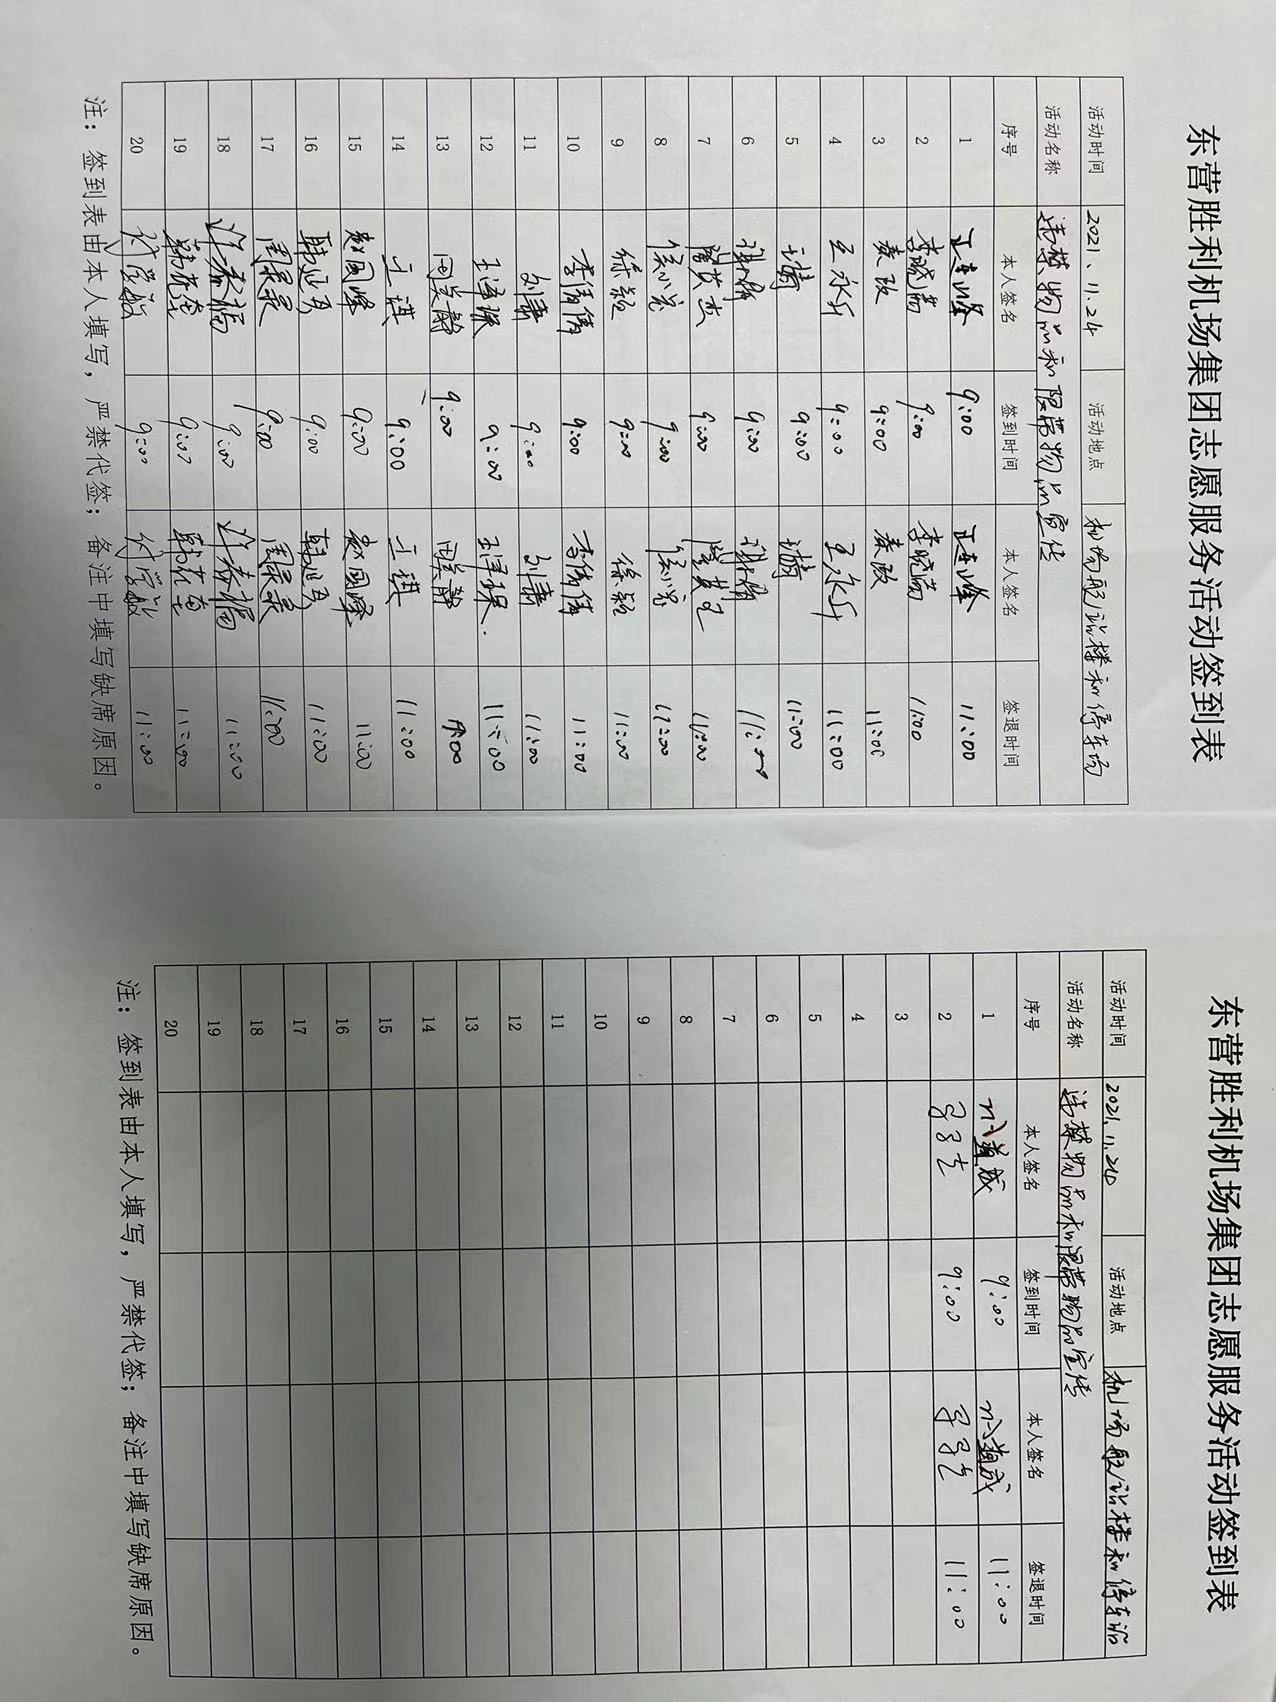 东营胜利机场集团志愿服务活动签到表
活动时间 2021.11.24 活动地点 机场航站楼和停车场
活动名称 违禁物品和限带物品宣传
序号 本人签名 签到时间 本人签名 签退时间
1 9:00 11:00
2 李晓菊 9:00 李晓菊 11:00
3 秦政 9:00 秦政 11:00
4 王永军 9:00 王永军 11:00
5 9:00 11:00
6 9:00 11:00
7 9:00 11:00
8 9:00 11:00
9 徐颖 9:00 徐颖 11:00
10 李倩倩 9:00 李倩倩 11:00
11 刘春 9:00 刘春 11:00
12 9:00 11:00
13 9:00 9:00
14 王琪 9:00 王琪 11:00
15 赵国峰 9:00 赵国峰 11:00
16 韩延勇 9:00 韩延勇 11:00
17 9:00 11:00
18 许春福 9:00 许春福 11:00
19 9:00 11:00
20 付学敏 9:00 付学敏 11:00
注：签到表由本人填写，严禁代签；备注中填写缺席原因。
东营胜利机场集团志愿服务活动签到表
活动时间 2021.11.24 活动地点 机场航站楼和停车场
活动名称 违禁物品和限带物品宣传
序号 本人签名 签到时间 本人签名 签退时间
1 9:00 11:00
2 9:00 11:00
3
4
5
6
7
8
9
10
11
12
13
14
15
16
17
18
19
20
注：签到表由本人填写，严禁代签；备注中填写缺席原因。